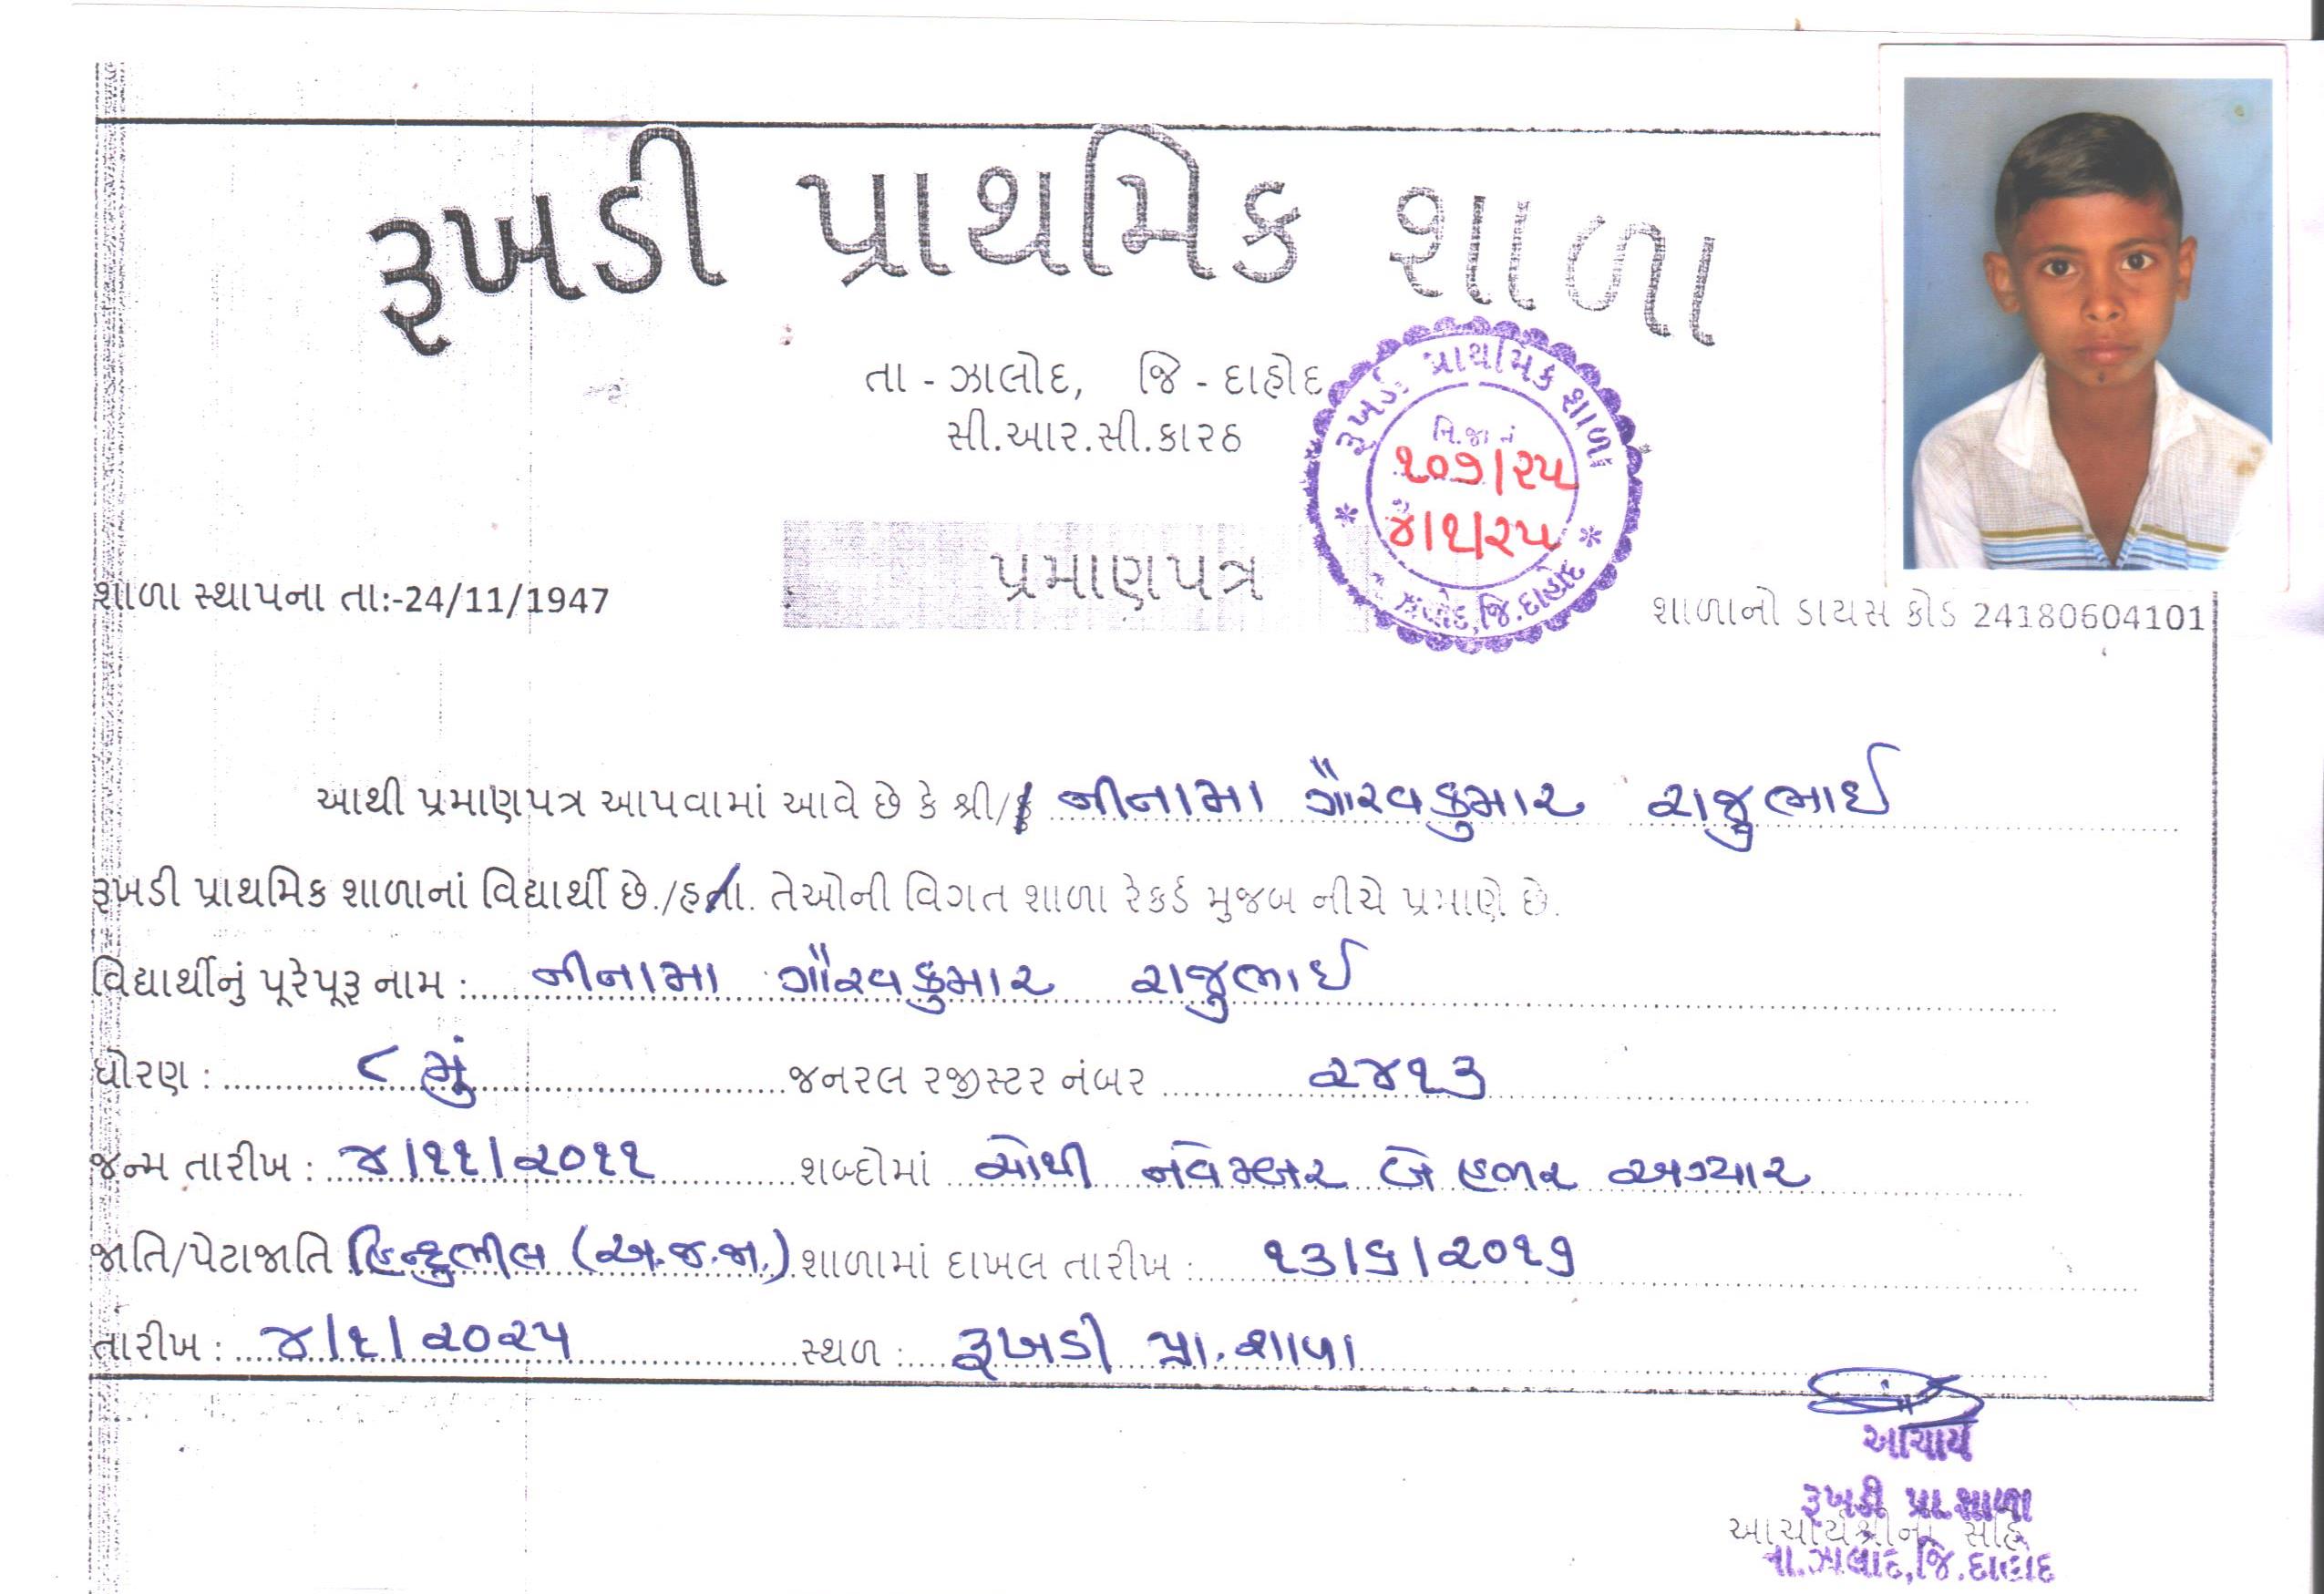 રૂખડી પ્રાથમિક શાળા
તા - ઝાલોદ, જિ - દાહોદ
સી.આર.સી.કારઠ
રૂખડી પ્રાથમિક શાળા
નિ.જા નં
૧૦૭/૨૫
૪/૧/૨૫
ઝાલોદ,જિ.દાહોદ
પ્રમાણપત્ર
શાળા સ્થાપના તા:-24/11/1947
શાળાનો ડાયસ કોડ 24180604101
આથી પ્રમાણપત્ર આપવામાં આવે છે કે શ્રી/ નીનામા ગૌરવકુમાર રાજુભાઈ
રૂખડી પ્રાથમિક શાળાનાં વિદ્યાર્થી છે./હતા. તેઓની વિગત શાળા રેકર્ડ મુજબ નીચે પ્રમાણે છે.
વિદ્યાર્થીનું પૂરેપૂરૂ નામ : નીનામા ગૌરવકુમાર રાજુભાઈ
ધોરણ : ૮ મું જનરલ રજીસ્ટર નંબર ૨૪૧૩
જન્મ તારીખ : ૪/૧૧/૨૦૧૧ શબ્દોમાં ચોથી નવેમ્બર બે હજાર અગ્યાર
જાતિ/પેટાજાતિ હિન્દુભીલ (અ.જ.જા.) શાળામાં દાખલ તારીખ : ૧૩/૬/૨૦૧૭
તારીખ : ૪/૧/૨૦૨૫ સ્થળ : રૂખડી પ્રા.શાળા
આચાર્ય
રૂખડી પ્રા.શાળા
આચાર્યશ્રીની સહિ
તા.ઝાલોદ,જિ.દાહોદ